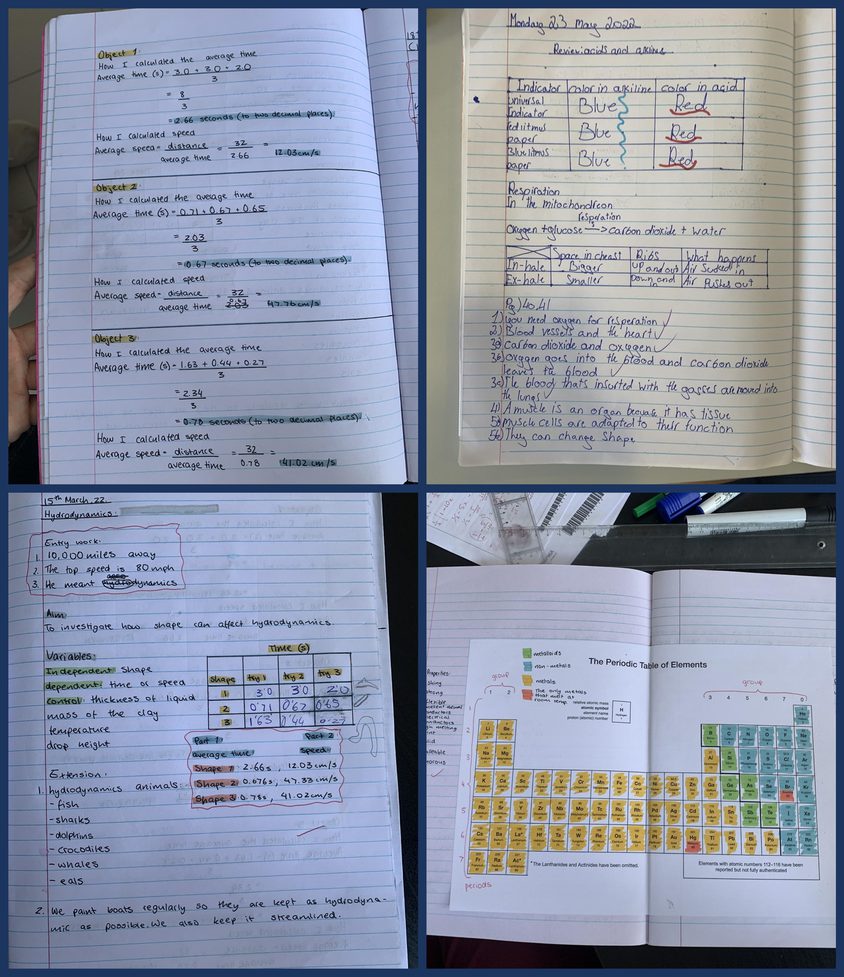 Object 1:
How I calculated the average time
Average time (s) = 3.0 + 3.0 + 2.0
3
= 8
3
= 2.66 seconds (to two decimal places).
How I calculated speed
Average speed = distance = 32 =
average time 2.66 12.03cm/s
Object 2
How I calculated the average time
Average time (s) = 0.71 + 0.67 + 0.65
3
= 2.03
3
= 0.67 seconds (to two decimal places).
How I calculated speed
Average speed = distance = 32 =
average time 47.76 cm/s
Object 3:
How I calculated the average time
Average time (s) = 1.63 + 0.44 + 0.27
3
= 2.34
3
= 0.78 seconds (to two decimal places).
How I calculated speed
Average speed = distance = 32 =
average time 0.78 41.02 cm/s
Monday 23 May 2022
Review acids and alkine
Indicator color in alkiline color in acid
universal Indicator Blue Red
red litmus paper Blue Red
Blue litmus paper Blue Red
Respiration
In the mitochondreon
resperation
Oxygen + glucose → carbon dioxide + water
Space in cheast Ribs What happens
In-hale Bigger up and out Air sucked in
Ex-hale Smaller Down and in Air Pushes out
Pg) 40,41
1) you need oxygen for resperation
2) Blood vessels and the heart
3a) carbon dioxide and oxygen
3b) oxygen goes into the blood and carbon dioxide
leaves the blood
3c) The blood thats insurted with the gasses are moved into
the lungs
4) A muscle is an organ becuase it has tissue
5a) Muscle cells are adapted to their function
5b) They can change shape
15th March, 22
Hydrodynamics:
Entry work:
1. 10,000 miles away
2. The top speed is 80 mph
3. He meant hydrodynamics
Aim:
To investigate how shape can affect hydrodynamics.
Variables:
Independent: Shape
dependent: time or speed
control: thickness of liquid
mass of the clay
temperature
drop height
Time (s)
Shape try 1 try 2 try 3
1 3.0 3.0 2.0
2 0.71 0.67 0.65
3 1.63 0.44 0.27
Part 1: Part 2
average time: Speed:
Shape 1: 2.66s, 12.03cm/s
Shape 2: 0.676s, 47.33 cm/s
Shape 3: 0.78s, 41.02cm/s
Extension:
1. hydrodynamics animals:
- fish
- sharks
- dolphins
- crocodiles
- whales
- eals
2. We paint boats regularly so they are kept as hydrodyna-
mic as possible. We also keep it streamlined.
metalloids
non-metals
metals
The only metals
that melt at
room temp.
The Periodic Table of Elements
group
1 2
relative atomic mass
atomic symbol
element name
proton (atomic) number
H
group
3 4 5 6 7 0
He
Li Be B C N O F Ne
3 Na Mg Al Si P S Cl Ar
4 K Ca Sc Ti V Cr Mn Fe Co Ni Cu Zn Ga Ge As Se Br Kr
5 Rb Sr Y Zr Nb Mo Tc Ru Rh Pd Ag Cd In Sn Sb Te I Xe
6 Cs Ba La* Hf Ta W Re Os Ir Pt Au Hg Tl Pb Bi Po At Rn
7 Fr Ra Ac*
*The Lanthanides and Actinides have been omitted.
Elements with atomic numbers 112–116 have been
reported but not fully authenticated
periods